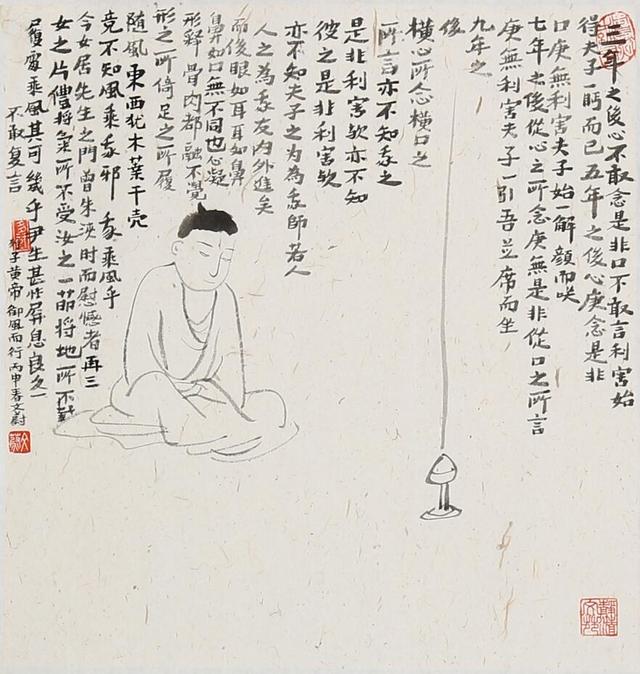 三年之後心不敢念是非口不敢言利害始
得夫子一眄而已五年之後心庚念是非
口庚無利害夫子始一解顏而咲
七年之後從心之所念庚無是非從口之所言
庚無利害夫子一引吾並席而坐
九年之
後
橫心所念橫口之
所言亦不知我之
是非利害歟亦不知
彼之是非利害歟
亦不知夫子之為為我師若人
人之為我友內外進矣
而後眼如耳耳如鼻
鼻如口無不同也心凝
形釋骨肉都融不覺
形之所倚足之所履
隨風東西猶木葉干壳
竟不知風乘我邪我乘風乎
今女居先生之門曾未浹时而懟憾者再三
女之片體將氣所不受汝之一節將地所不載
履虛乘風其可幾乎尹生甚怍屏息良久
不敢复言
列子黃帝御風而行丙申春文尉